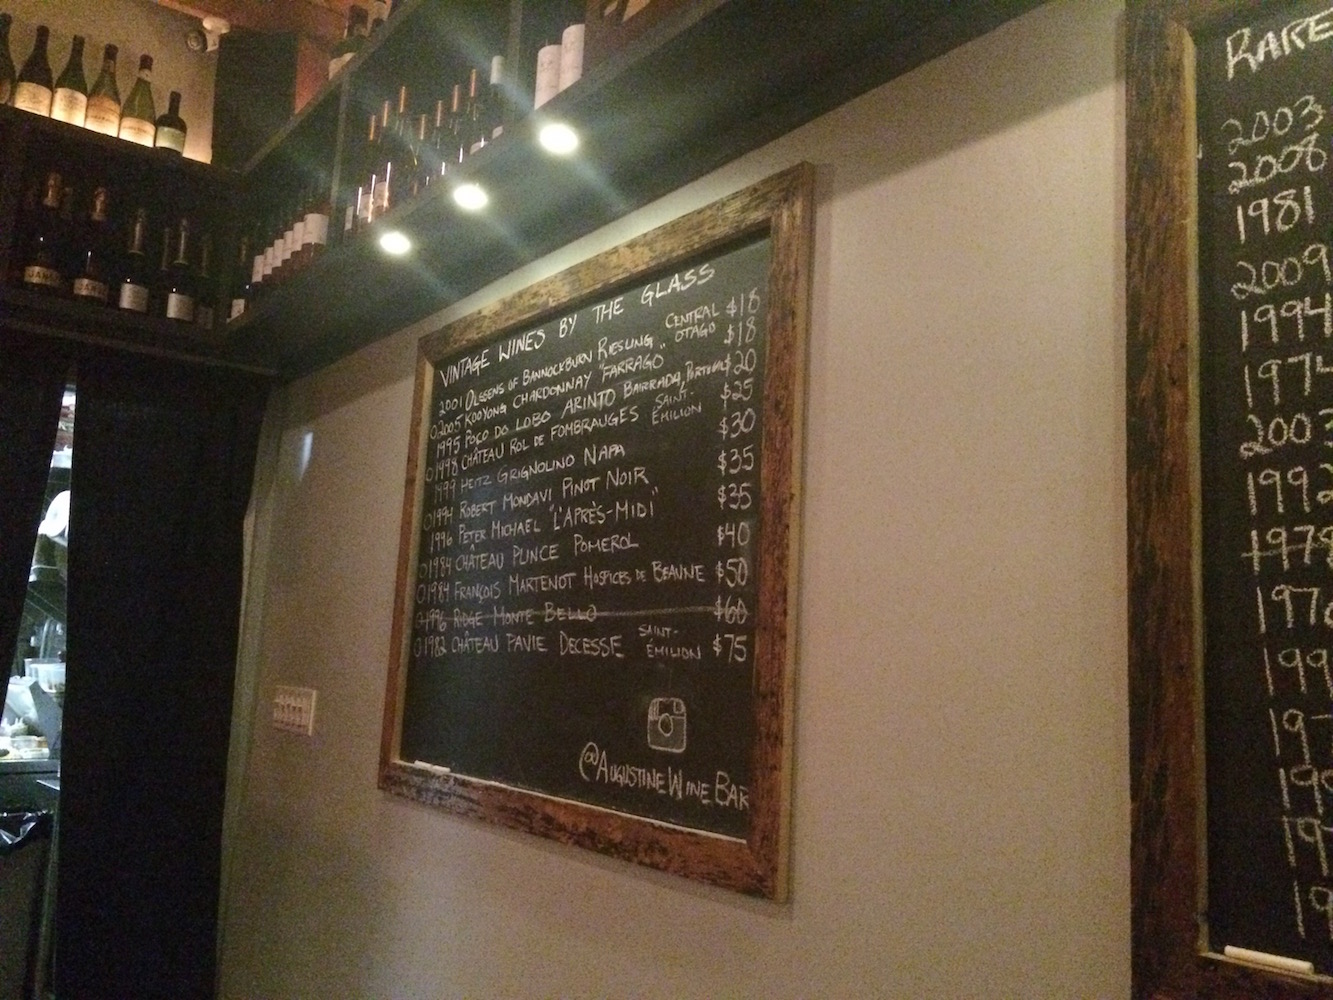 VINTAGE WINES BY THE GLASS
2001 OLSSENS OF BANNOCKBURN RIESLING CENTRAL OTAGO $18
2005 KOOYONG CHARDONNAY "FARRAGO" $18
1995 POÇO DO LOBO ARINTO BAIRRADA, PORTUGAL $20
1998 CHÂTEAU ROL DE FOMBRAUGES SAINT-ÉMILION $25
1999 HEITZ GRIGNOLINO NAPA $30
1994 ROBERT MONDAVI PINOT NOIR $35
1996 PETER MICHAEL "L'APRÈS-MIDI" $35
1984 CHÂTEAU PLINCE POMEROL $40
1984 FRANÇOIS MARTENOT HOSPICES DE BEAUNE $50
1996 RIDGE MONTE BELLO $60
1982 CHÂTEAU PAVIE DECESSE SAINT-ÉMILION $75
@AUGUSTINEWINEBAR
RARE
2003
2008
1981
2009
1994
1974
2003
1992
1978
1976
199
197
19
197
19